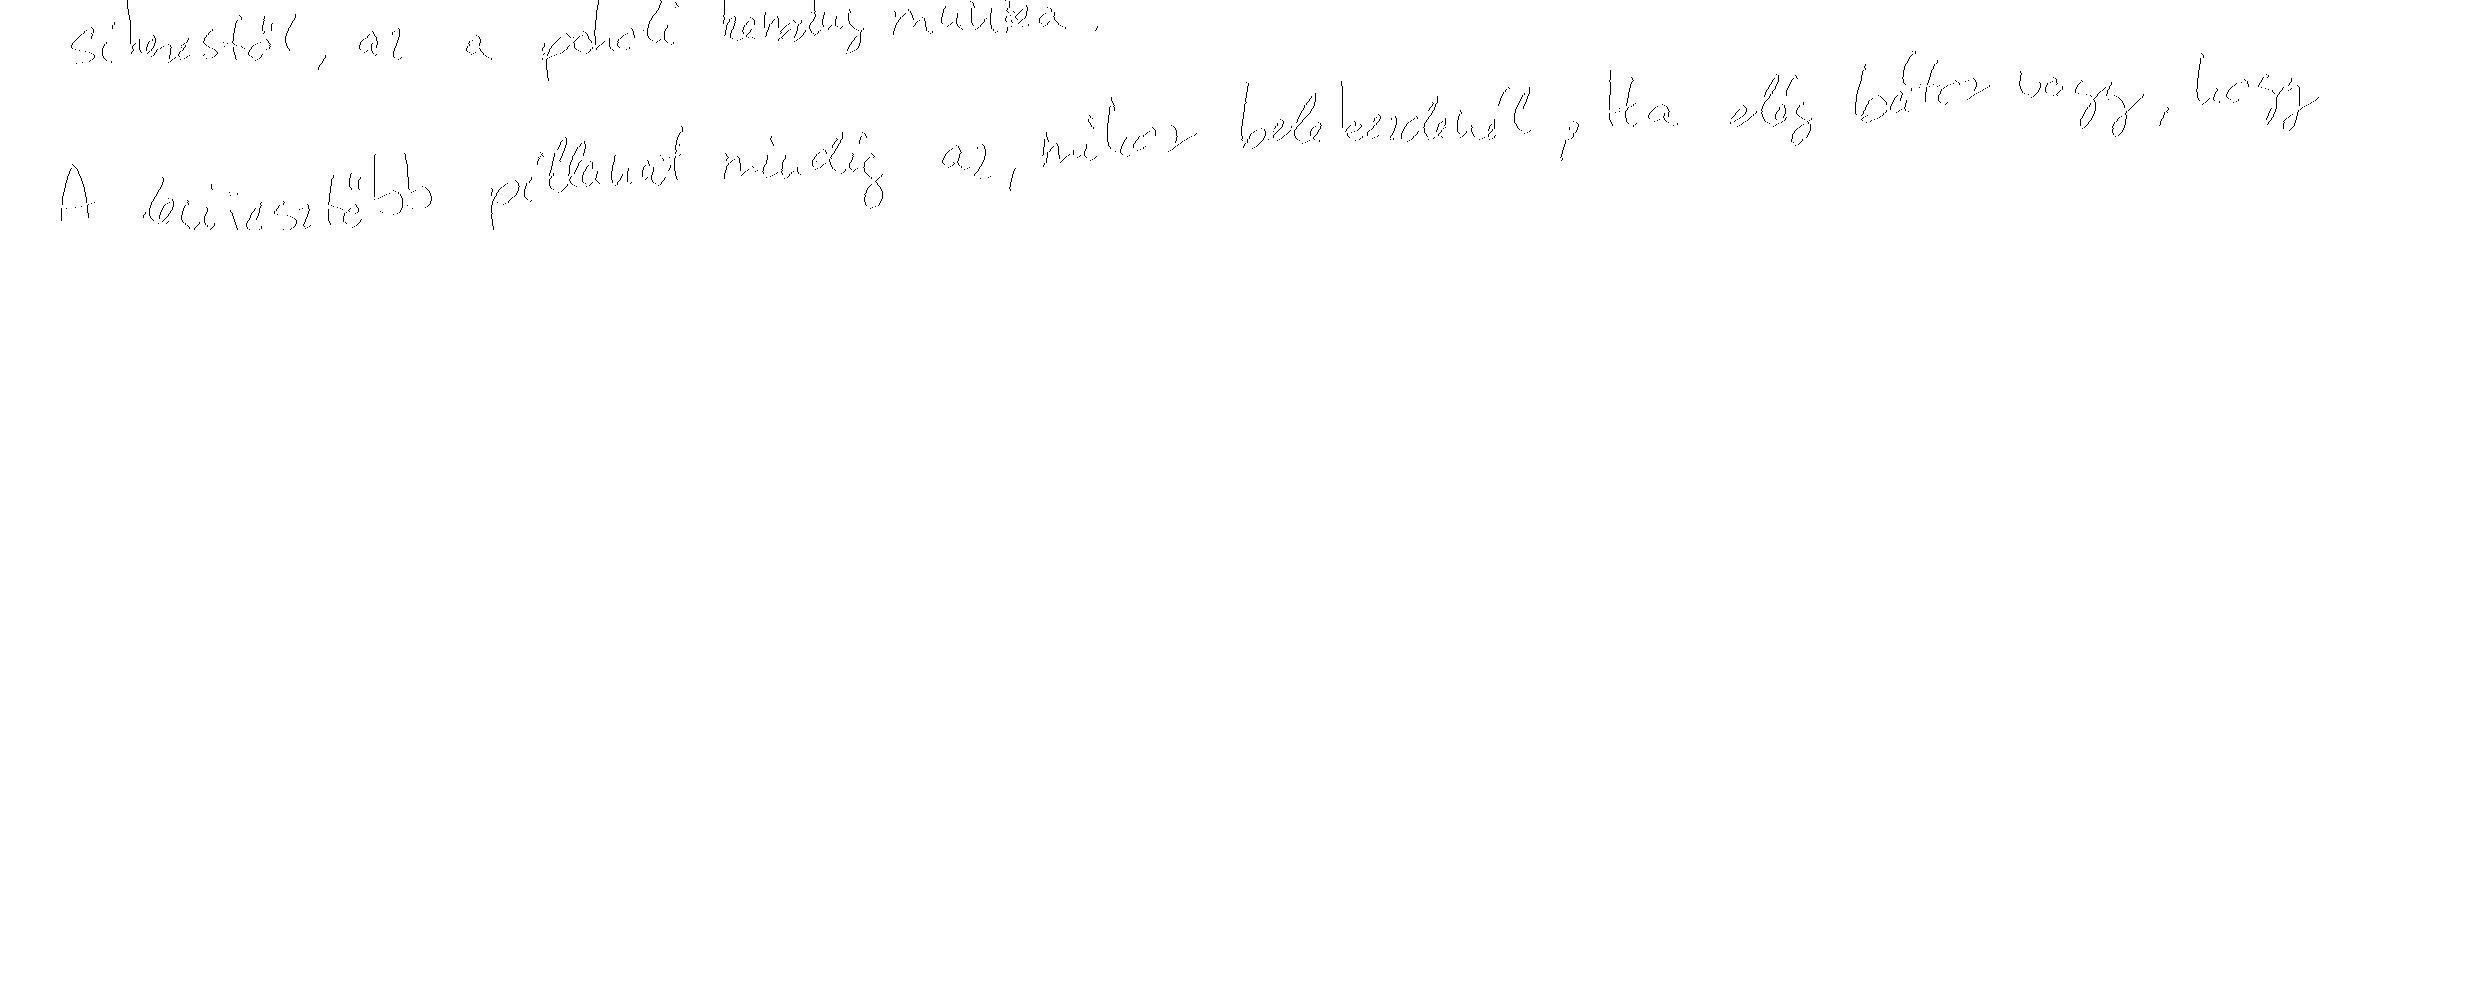 sikerestől, az a pokoli kemény munka.
A legijesztőbb pillanat mindig az, mikor belekezdenél, Ha elég bátor vagy, hogy